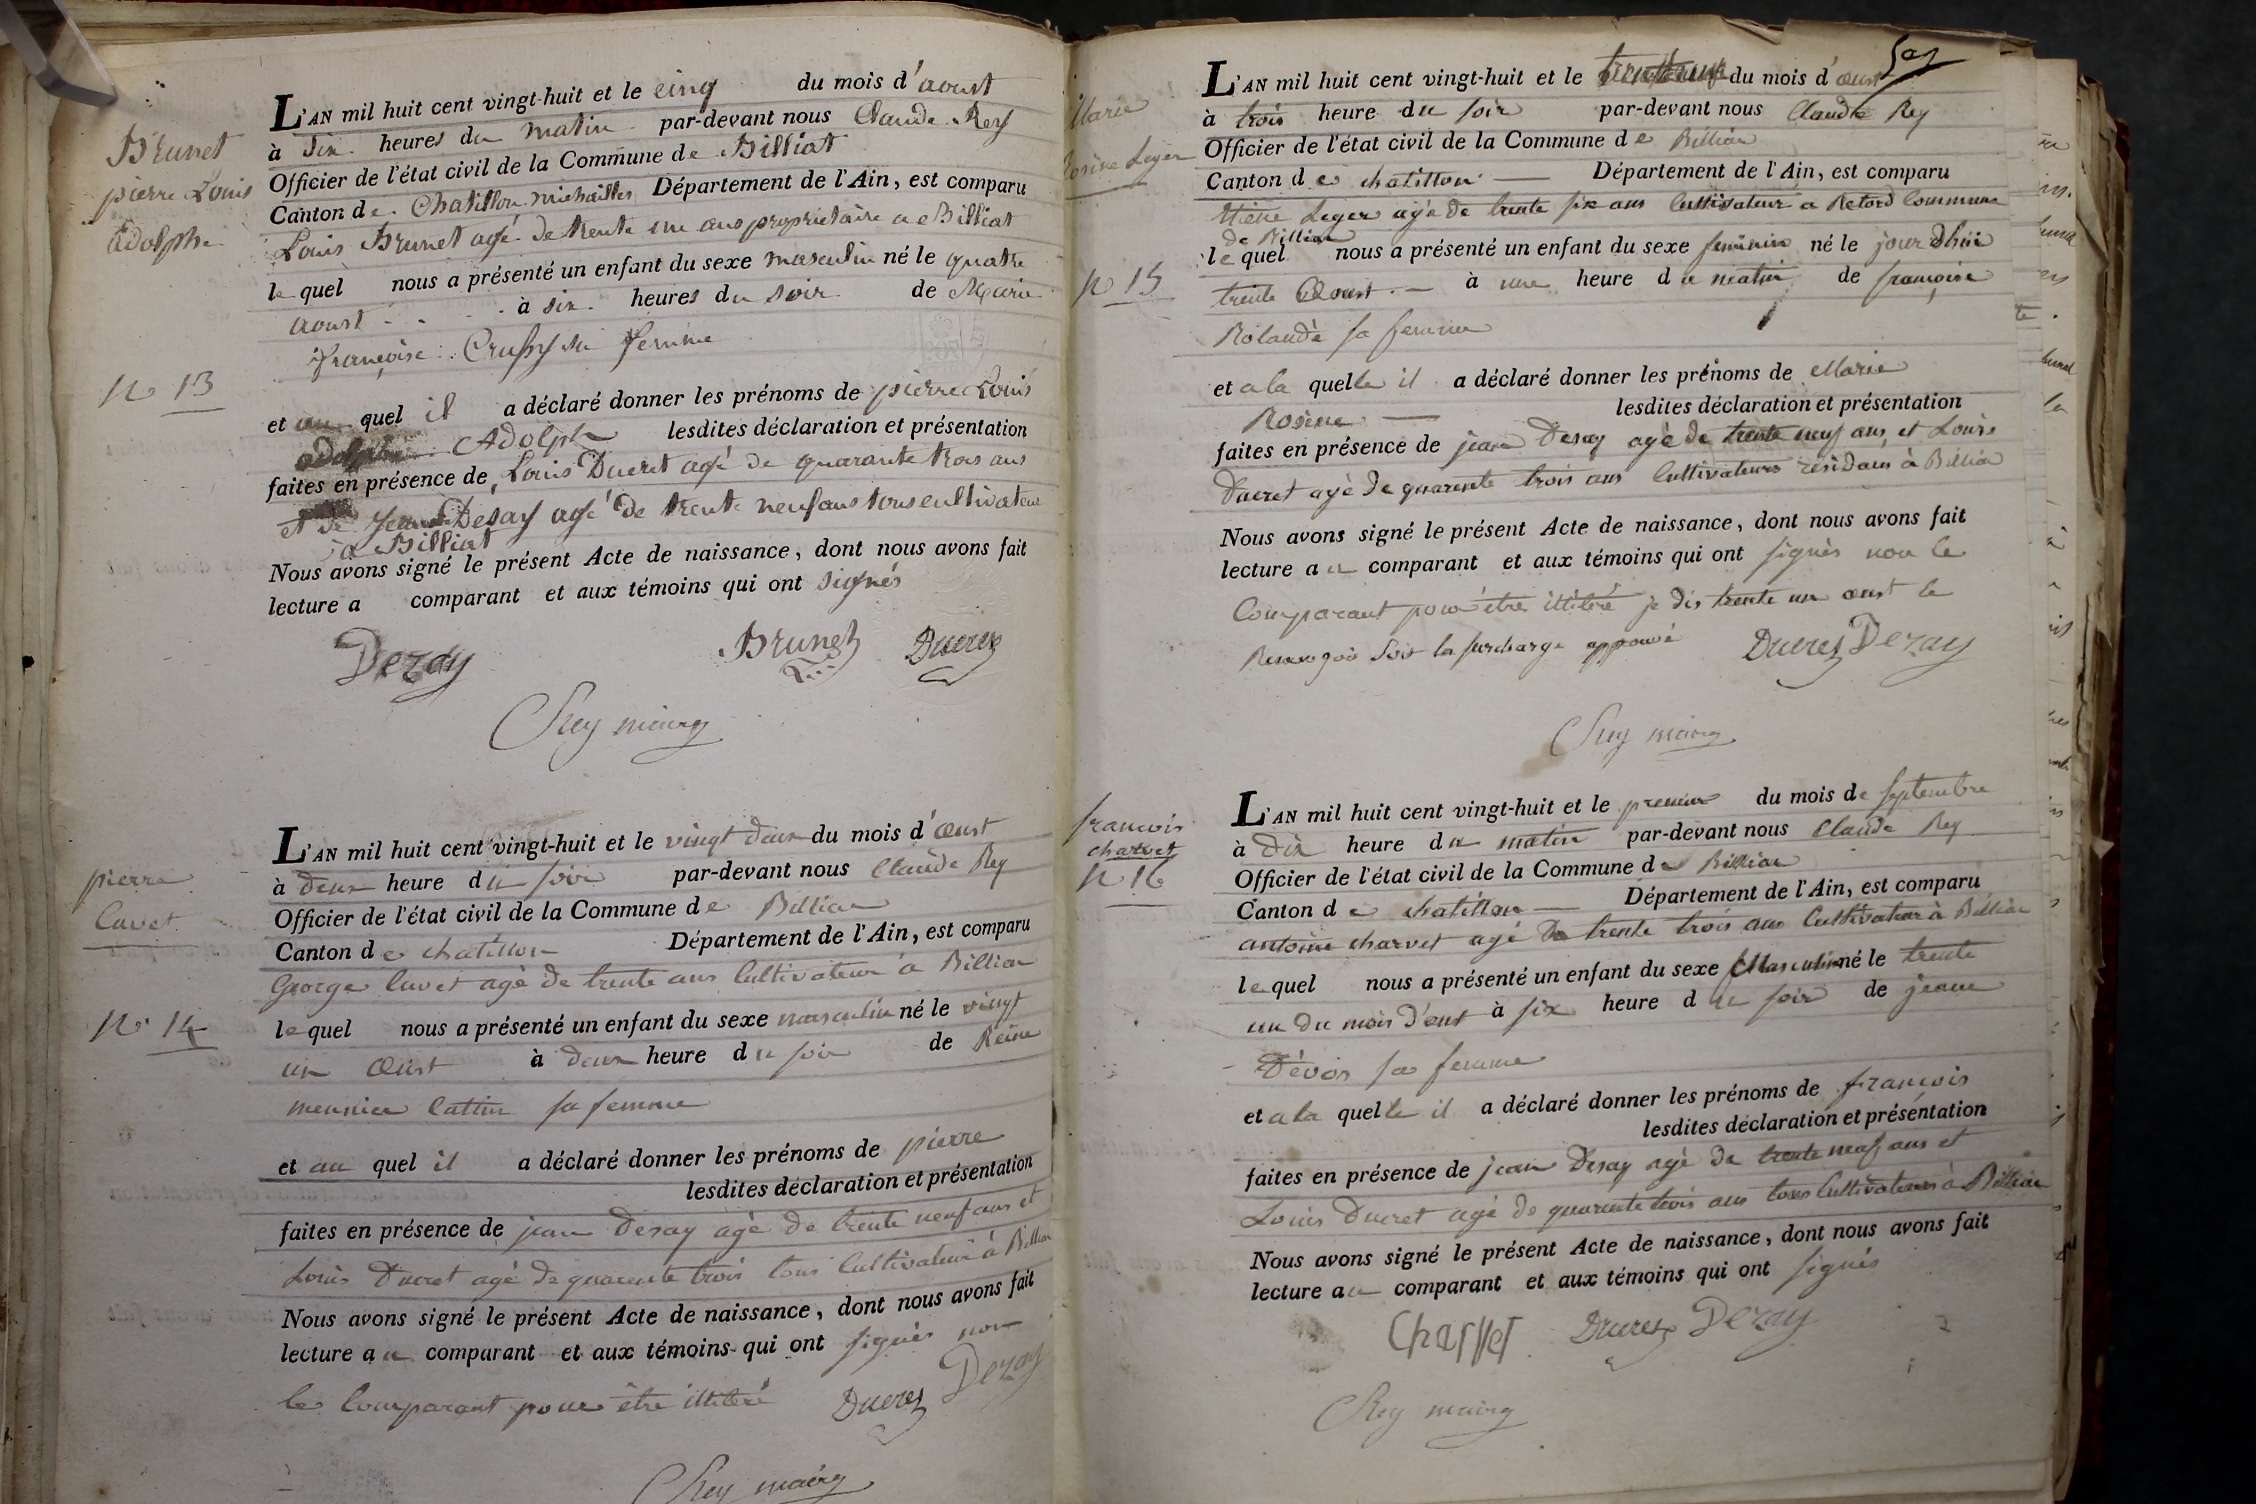 Brunet
pierre Louis
Adolphe
N° 13
L'AN mil huit cent vingt-huit et le cinq du mois d'aoust
à six heures du matin par-devant nous Claude Rey
Officier de l'état civil de la Commune de Billiat
Canton de Chatillon michailles Département de l'Ain, est comparu
Louis Brunet agé de trente un ans propriétaire a Billiat
lequel nous a présenté un enfant du sexe masculin né le quatre
aoust à six heures du soir de Marie
françoise femme
et au quel il a déclaré donner les prénoms de pierre Louis
Adolphe lesdites déclaration et présentation
faites en présence de Louis Ducret agé de quarante trois ans
et de Jean Desay agé de trente neuf ans tous cultivateur
a Billiat
Nous avons signé le présent Acte de naissance, dont nous avons fait
lecture a comparant et aux témoins qui ont signés
Dezay Brunet Ducret
Rey maire
pierre
Cavet
N° 14
L'AN mil huit cent vingt-huit et le vingt deux du mois d'oust
à deux heure du soir par-devant nous Claude Rey
Officier de l'état civil de la Commune de Billiat
Canton de chatillon Département de l'Ain, est comparu
George Cavet agé de trente ans Cultivateur à Billiat
lequel nous a présenté un enfant du sexe masculin né le vingt
un oust à deux heure du soir de Reine
sa femme
et au quel il a déclaré donner les prénoms de pierre
lesdites déclaration et présentation
faites en présence de jean Desay agé de trente neuf ans et
Louis Ducret agé de quarente trois tous Cultivateur à Billiat
Nous avons signé le présent Acte de naissance, dont nous avons fait
lecture au comparant et aux témoins qui ont signés non
le Comparant pour être illitéré Ducret Dezay
Rey maire
Marie
Rosine Leger
N° 15
L'AN mil huit cent vingt-huit et le du mois d'oust
à trois heure du soir par-devant nous Claude Rey
Officier de l'état civil de la Commune de Billiat
Canton de chatillon Département de l'Ain, est comparu
Leger agé de trente six ans Cultivateur a Retord Commune
de Billiat
lequel nous a présenté un enfant du sexe feminin né le jour dhui
trente Aoust à une heure du matin de françoise
Rolande sa femme
et a la quelle il a déclaré donner les prénoms de Marie
Rosine lesdites déclaration et présentation
faites en présence de jean Desay agé de trente neuf ans et Louis
Ducret agé de quarente trois ans Cultivateurs résidans à Billiat
Nous avons signé le présent Acte de naissance, dont nous avons fait
lecture au comparant et aux témoins qui ont signés non le
Comparant pour être illitéré je dis trente un oust le
soir la surcharge appouvé Ducret Dezay
Rey maire
francois
charvet
N° 16
L'AN mil huit cent vingt-huit et le premier du mois de septembre
à dix heure du matin par-devant nous Claude Rey
Officier de l'état civil de la Commune de Billiat
Canton de chatillon Département de l'Ain, est comparu
antoine charvet agé de trente trois ans Cultivateur à Billiat
lequel nous a présenté un enfant du sexe Masculin né le trente
un du mois d'out à six heure du soir de jeane
Dévos sa femme
et a la quelle il a déclaré donner les prénoms de francois
lesdites déclaration et présentation
faites en présence de jean Desay agé de trente neuf ans et
Louis Ducret agé de quarente trois ans tous Cultivateurs à Billiat
Nous avons signé le présent Acte de naissance, dont nous avons fait
lecture au comparant et aux témoins qui ont signés
Charvet Ducret Dezay
Rey maire